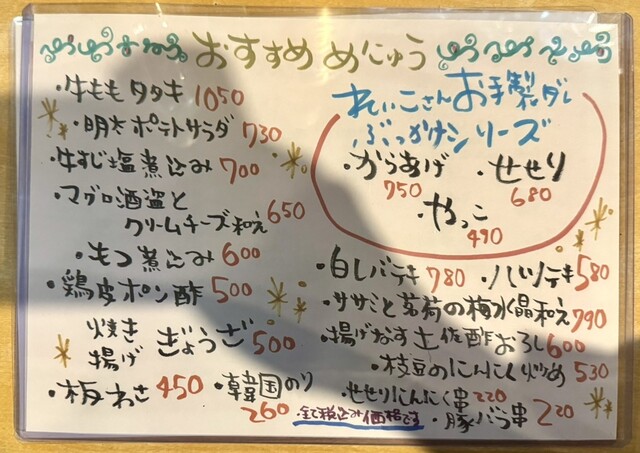 おすすめ めにゅう
・牛もも タタキ 1050
・明太ポテトサラダ 730
・牛すじ塩煮込み 700
・マグロ酒盗と
クリームチーズ和え 650
・もつ煮込み 600
・鶏皮ポン酢 500
焼き
揚げ ぎょうざ 500
・板わさ 450
・韓国のり 260
れいこさんお手製ダレ
ぶっかけシリーズ
・からあげ 750
・せせり 680
・やっこ 490
・白レバテキ 780
・ハツテキ 580
・ササミと茗荷の梅水晶和え 790
・揚げなす土佐酢おろし 600
・枝豆のにんにく炒め 530
・せせりにんにく串 220
・豚バラ串 220
全て税込み価格です